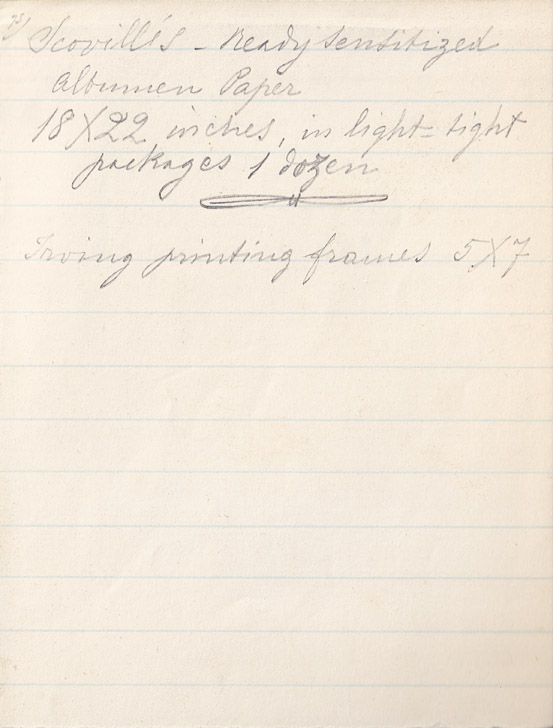 Scovill's - Ready Sensitized
Albumen Paper
18X22 inches, in light=tight
packages 1 dozen
Irving printing frames 5X7